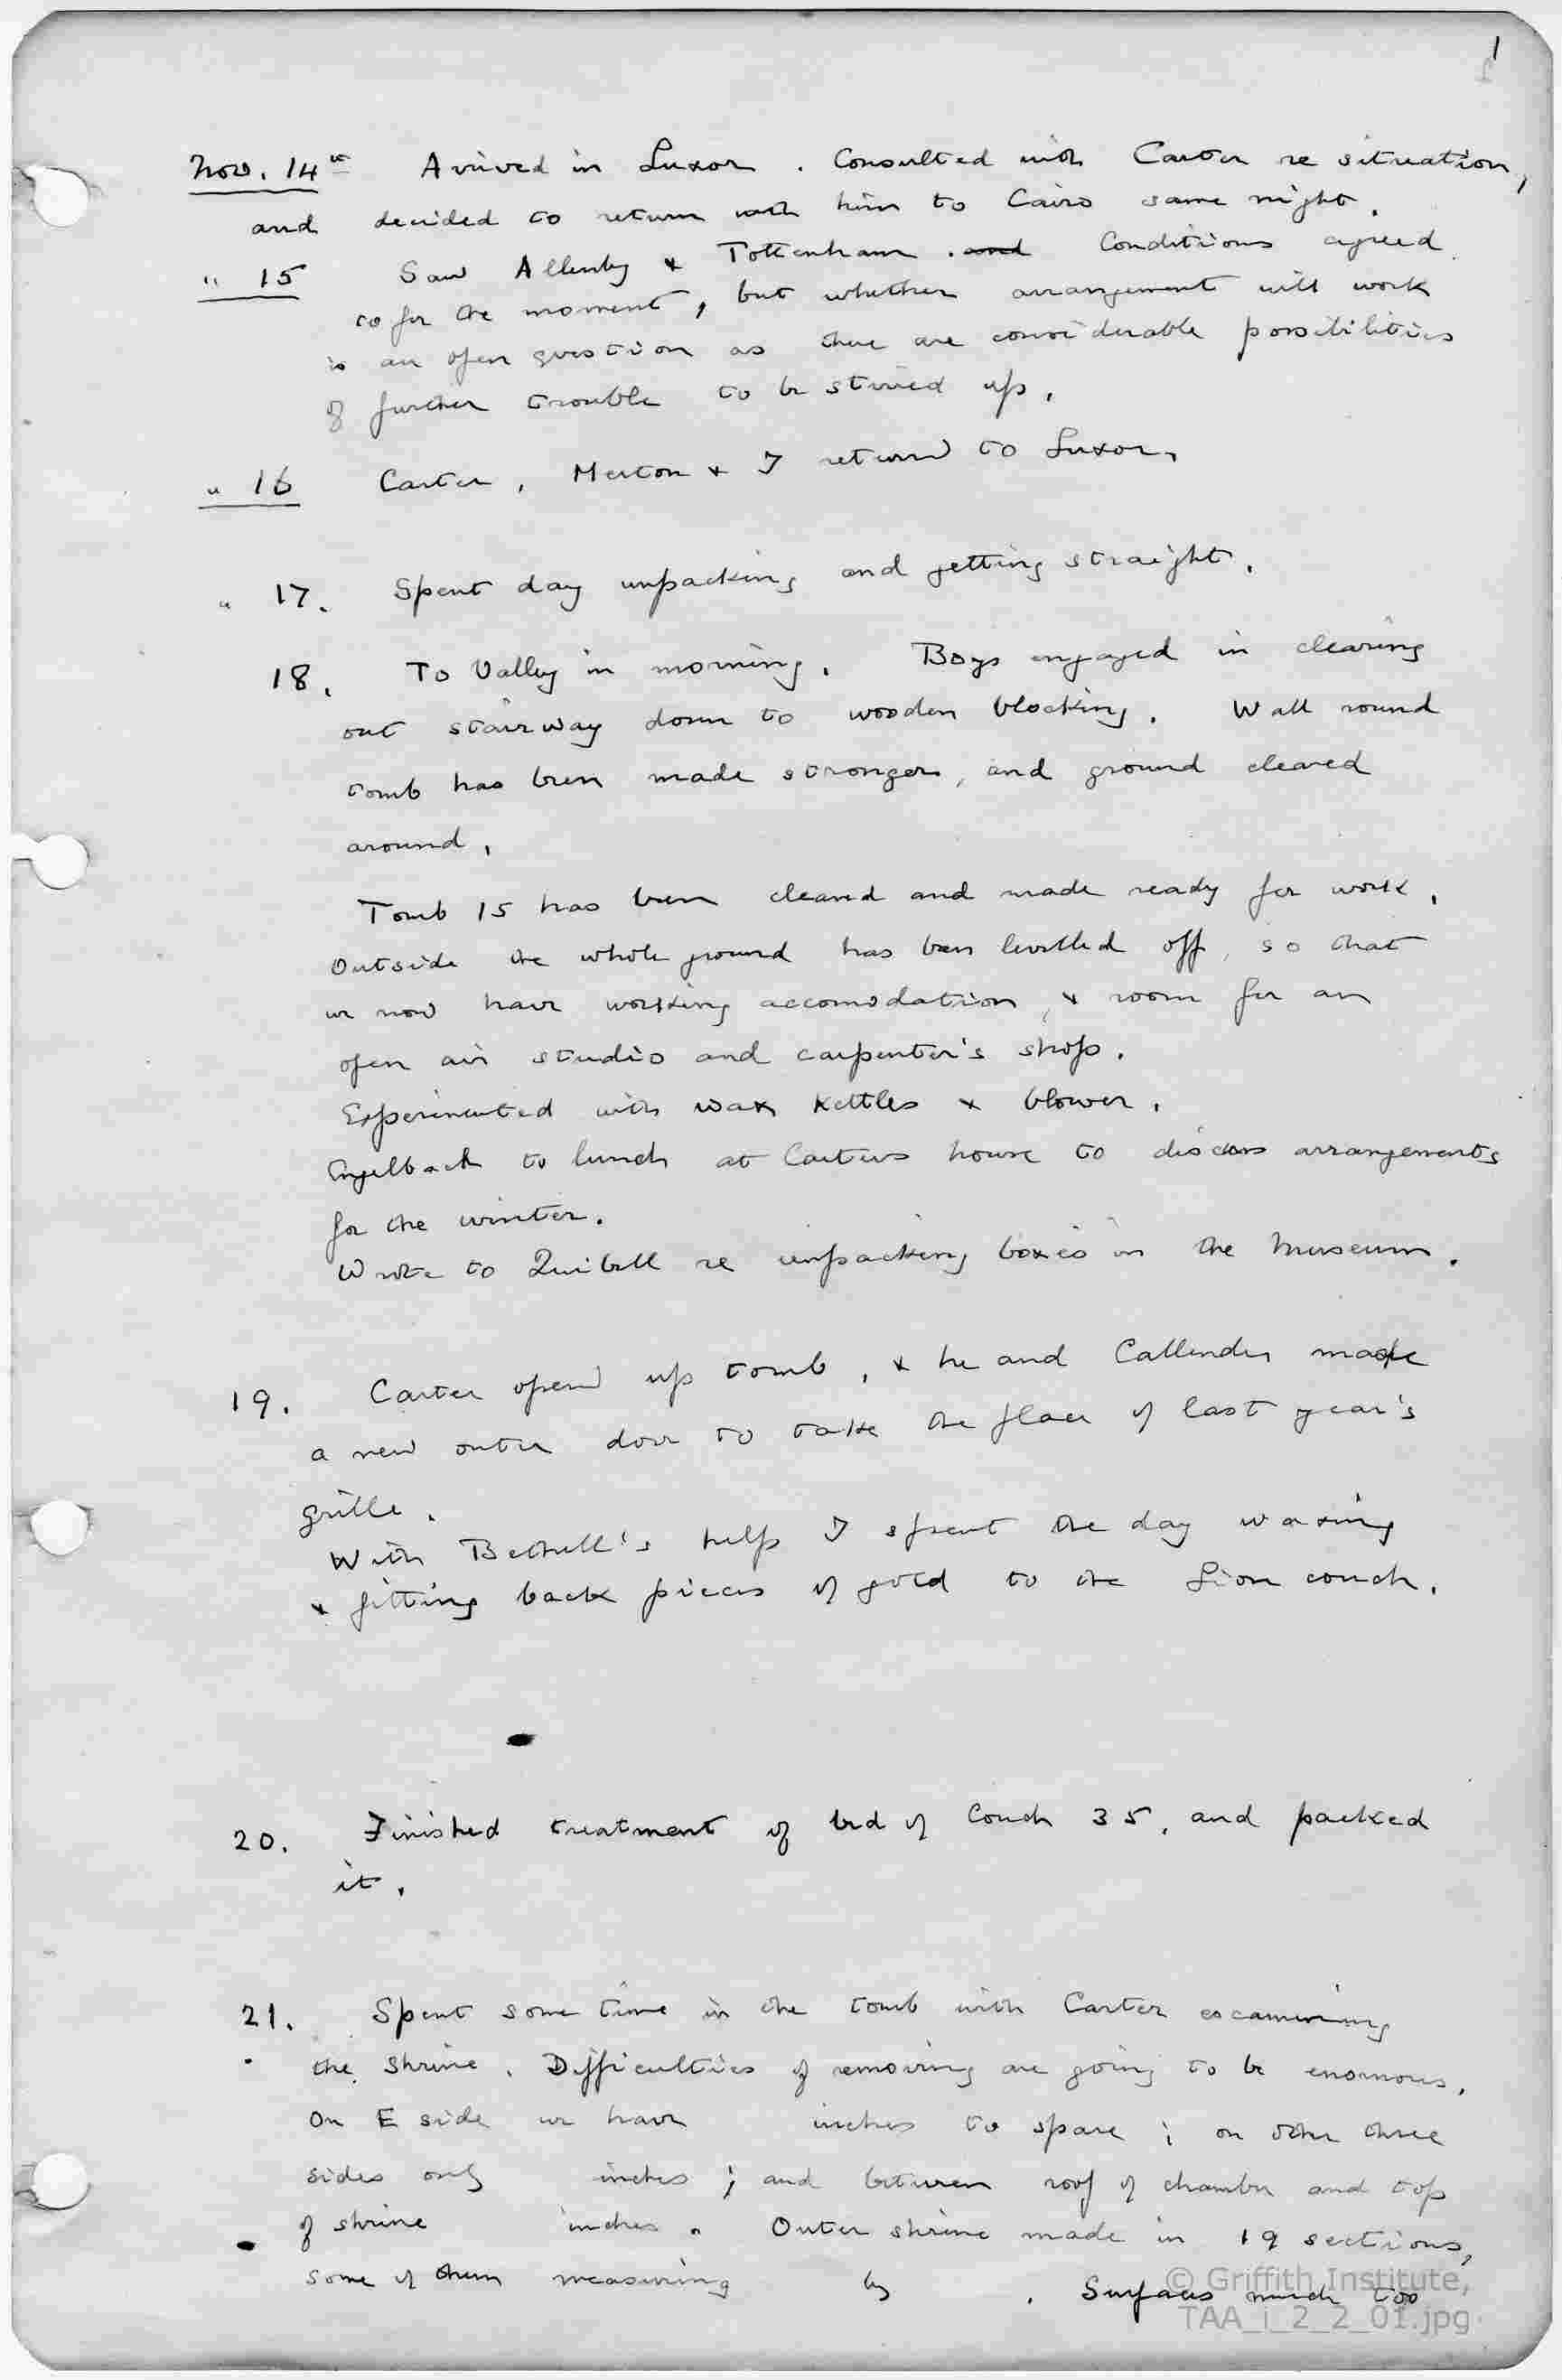 1
Nov. 14th Arrived in Luxor. Consulted with Carter re situation,
and decided to return with him to Cairo same night.
" 15 Saw Allenby & Tottenham. and Conditions agreed
to for the moment, but whether arrangement will work
is an open question as there are considerable possibilities
of further trouble to be stirred up.
" 16 Carter, Merton & I returned to Luxor.
" 17. Spent day unpacking and getting straight.
18. To Valley in morning. Boys engaged in clearing
out stairway down to wooden blocking. Wall round
tomb has been made stronger, and ground cleared
around.
Tomb 15 has been cleared and made ready for work.
Outside the whole ground has been levelled off, so that
we now have working accomodation, & room for an
open air studio and carpenter's shop.
Experimented with wax kettles & blower.
Engelbach to lunch at Carters house to discuss arrangements
for the winter.
Wrote to Quibell re unpacking boxes in the Museum.
19. Carter opened up tomb, & he and Callender made
a new outer door to take the place of last year's
grille.
With Bethell's help I spent the day waxing
& fitting back pieces of gold to the Lion couch.
20. Finished treatment of bed of Couch 35, and packed
it.
21. Spent some time in the tomb with Carter examining
the shrine. Difficulties of removing are going to be enormous.
On E side we have inches to spare; on other three
sides only inches; and between roof of chamber and top
of shrine inches. Outer shrine made in 19 sections,
some of them measuring by . Surfaces much too
© Griffith Institute,
TAA_i_2_2_01.jpg